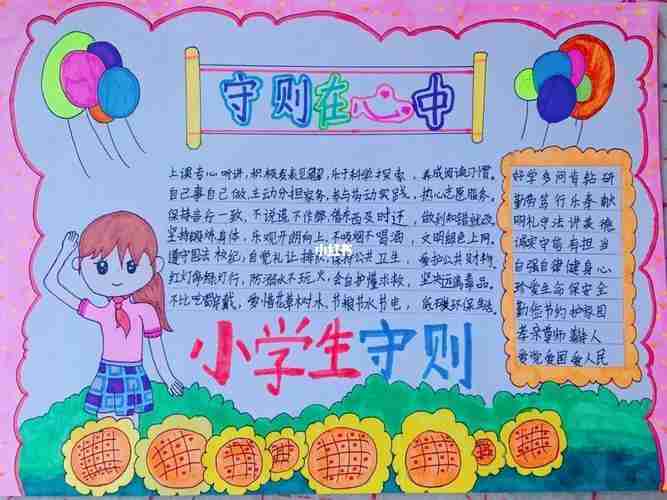 守则在心中
上课专心听讲,积极发表见解,乐于科学探索,养成阅读习惯。
自己事自己做,主动分担家务,参与劳动实践,热心志愿服务。
保持言行一致,不说谎不作弊,借东西及时还,做到知错就改。
坚持锻炼身体,乐观开朗向上,不吸烟不喝酒,文明绿色上网。
遵守国法校纪,自觉礼让排队,保持公共卫生,爱护公共财物。
红灯停绿灯行,防溺水不玩火,会自护懂求救,坚决远离毒品。
不比吃喝穿戴,爱惜花草树木,节粮节水节电,低碳环保生活。
小红书
好学多问肯钻研
勤劳笃行乐奉献
明礼守法讲美德
诚实守信有担当
自强自律健身心
珍爱生命保安全
勤俭节约护家园
孝亲尊师善待人
爱党爱国爱人民
小学生守则